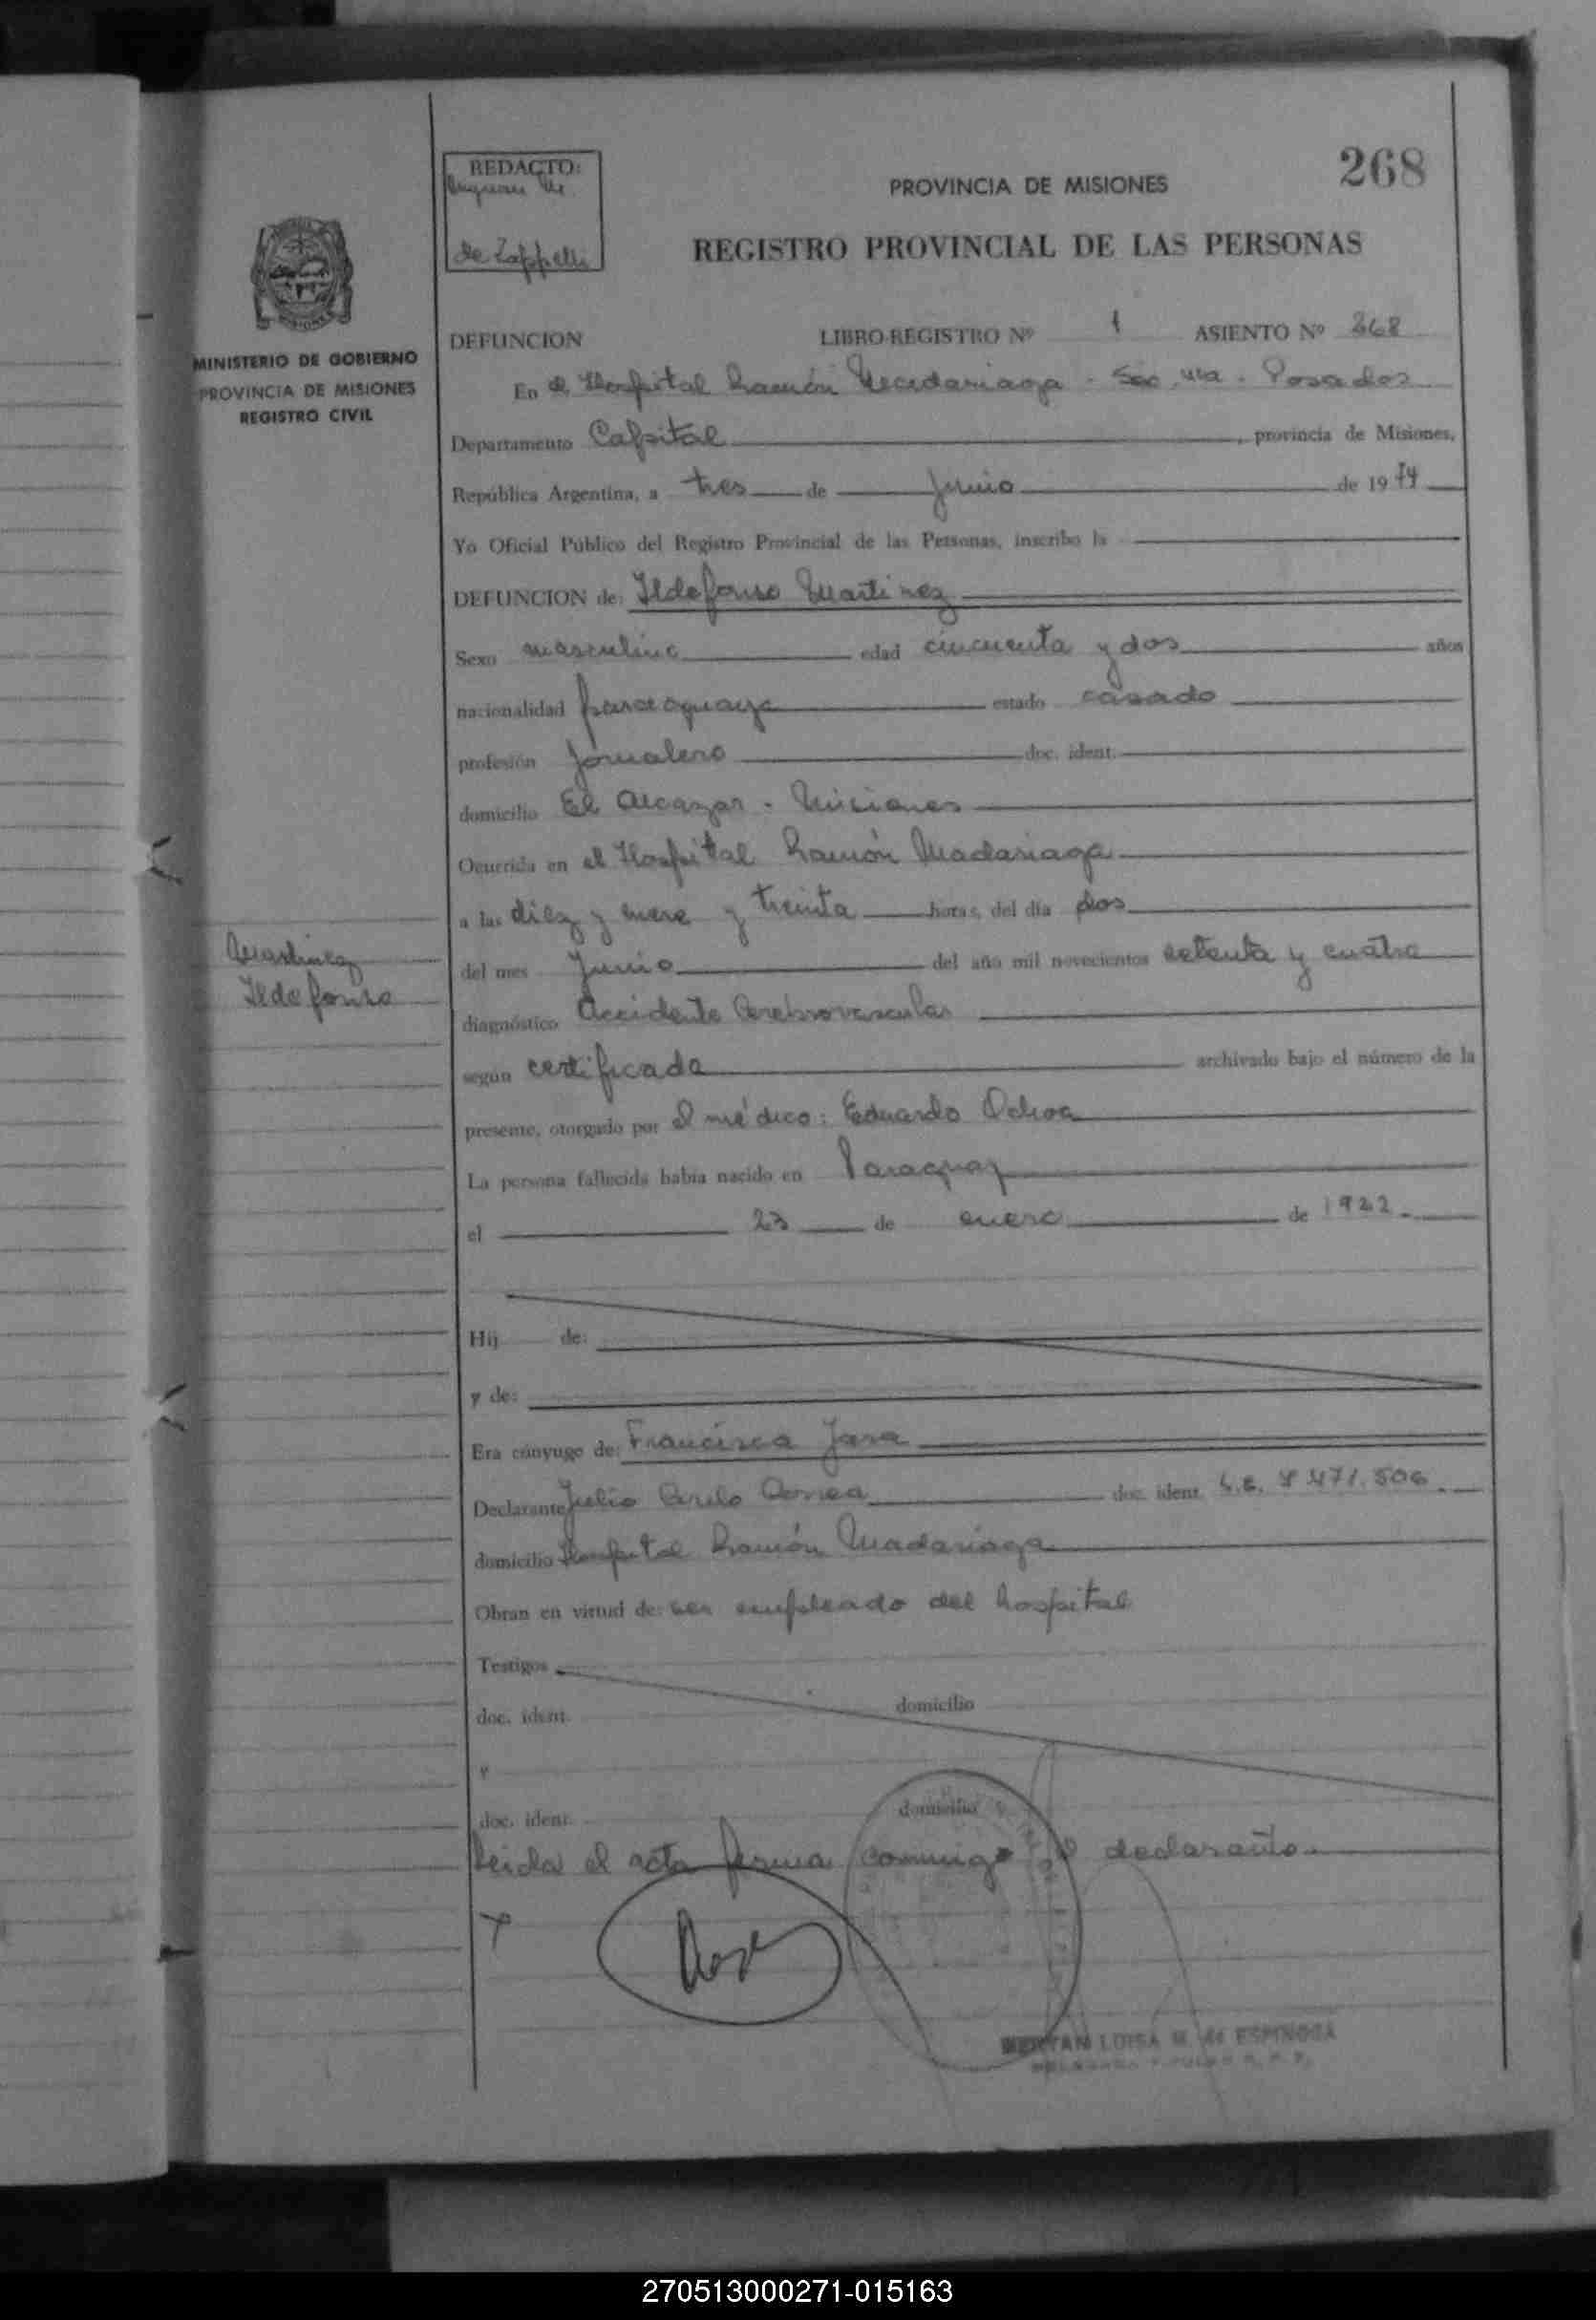 268
REDACTO:
de Zappelli
PROVINCIA DE MISIONES
REGISTRO PROVINCIAL DE LAS PERSONAS
MINISTERIO DE GOBIERNO
PROVINCIA DE MISIONES
REGISTRO CIVIL
DEFUNCION LIBRO-REGISTRO Nº 1 ASIENTO Nº 268
En el Hospital Ramón Madariaga - Sec. 4ta - Posadas
Departamento Capital, provincia de Misiones,
República Argentina, a tres de Junio de 1974
Yo Oficial Público del Registro Provincial de las Personas, inscribo la
DEFUNCION de: Ildefonso Martinez
Sexo masculino edad cincuenta y dos años
nacionalidad paraguaya estado casado
profesión Jornalero doc. ident.
domicilio El Alcazar - Misiones
Ocurrida en el Hospital Ramón Madariaga
a las diez y nueve y treinta horas, del día dos
Martinez
Ildefonso
del mes Junio del año mil novecientos setenta y cuatro
diagnóstico Accidente Cerebrovascular
según certificado archivado bajo el número de la
presente, otorgado por el médico: Eduardo Ochoa
La persona fallecida había nacido en Paraguay
el 23 de enero de 1922.
Hij de:
y de:
Era cónyuge de: Francisca Jara
Declarante Julio Correa doc. ident. L.E.
domicilio Hospital Ramón Madariaga
Obran en virtud de: ser empleado del hospital
Testigos
doc. ident. domicilio
y
doc. ident. domicilio
leida el acta firma conmigo el declarante.
LUISA M. de ESPINOZA
270513000271-015163